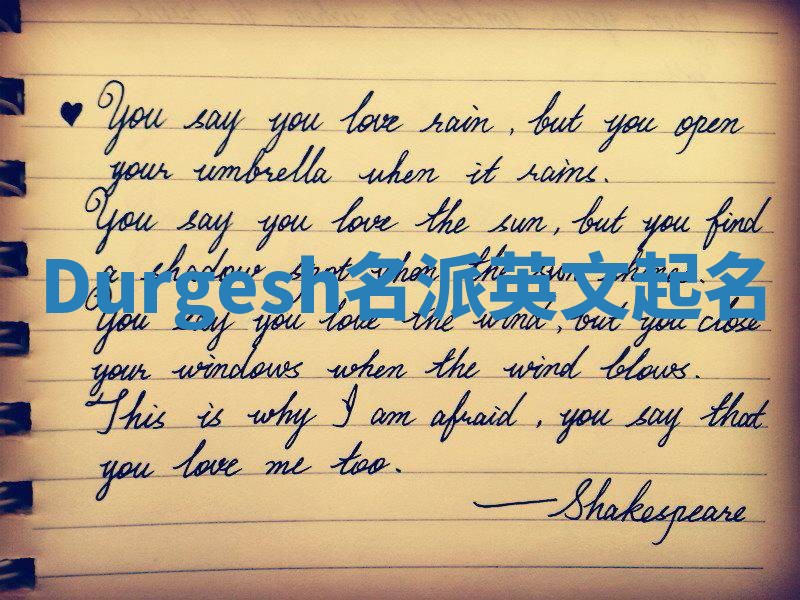 ♥ You say you love rain, but you open
your umbrella when it rains.
You say you love the sun, but you find
a shadow spot when the sun shines.
Durgesh名派英文起名
You say you love the wind, but you close
your windows when the wind blows.
This is why I am afraid, you say that
you love me too.
—Shakespeare